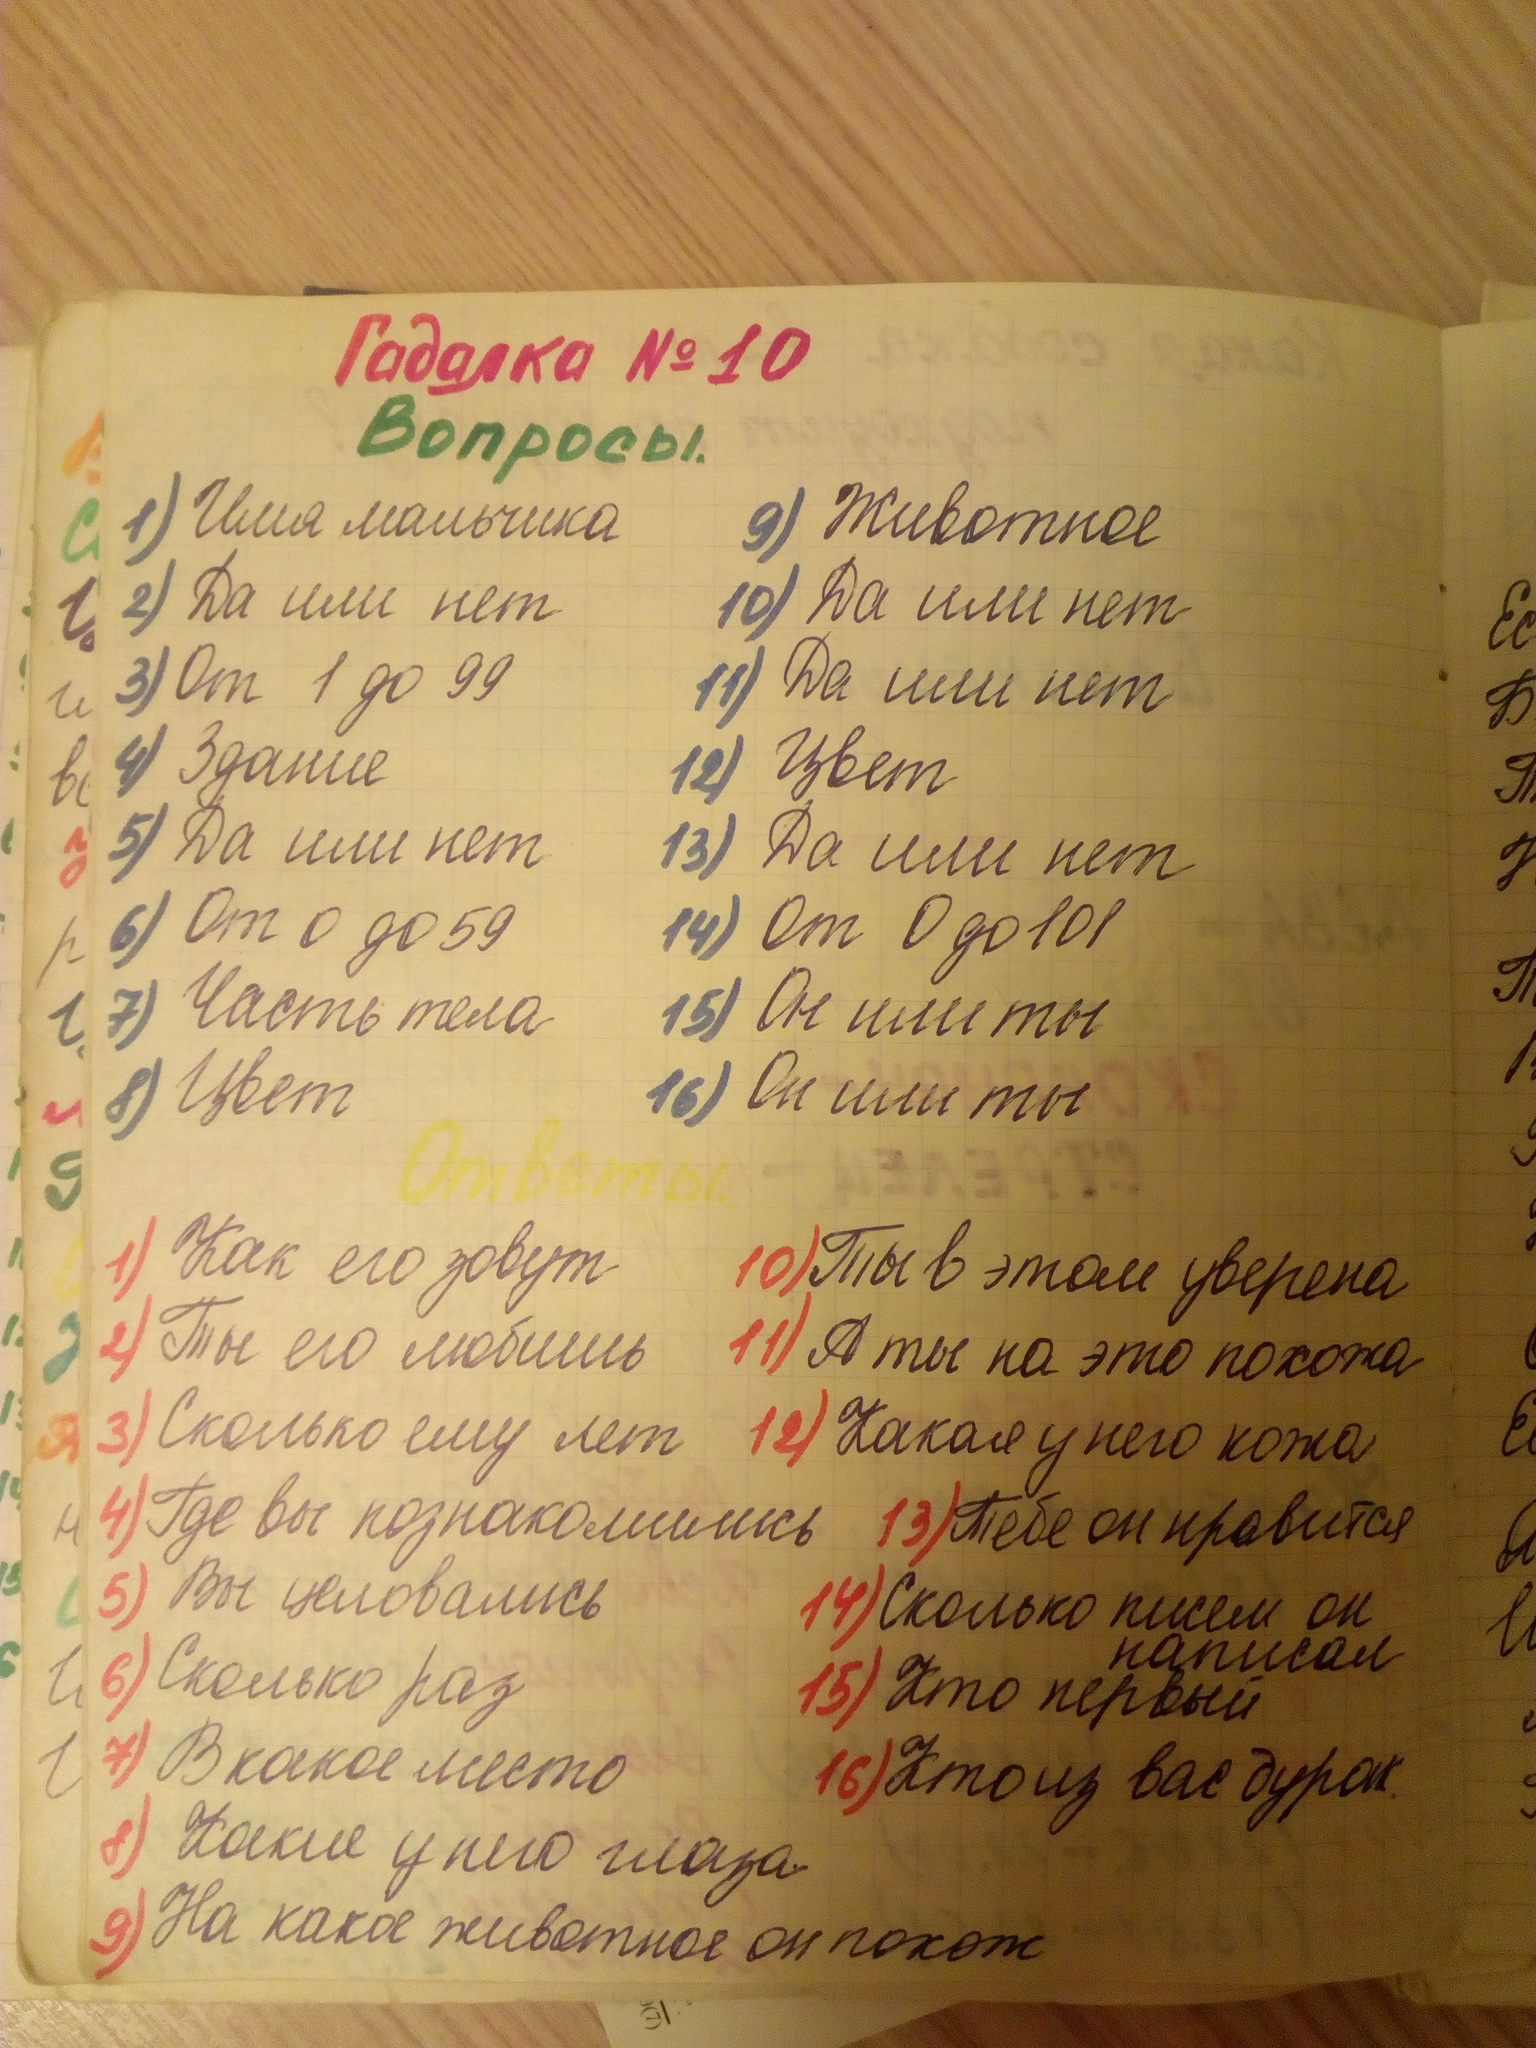 Гадалка № 10
Вопросы.
1) Имя мальчика
2) Да или нет
3) От 1 до 99
4) Здание
5) Да или нет
6) От 0 до 59
7) Часть тела
8) Цвет
9) Животное
10) Да или нет
11) Да или нет
12) Цвет
13) Да или нет
14) От 0 до 101
15) Он или ты
16) Он или ты
Ответы.
1) Как его зовут
2) Ты его любишь
3) Сколько ему лет
4) Где вы познакомились
5) Вы целовались
6) Сколько раз
7) В какое место
8) Какие у него глаза
9) На какое животное он похож
10) Ты в этом уверена
11) А ты на это похожа
12) Какая у него кожа
13) Тебе он нравится
14) Сколько писем он
написал
15) Кто первый
16) Кто из вас дурак.